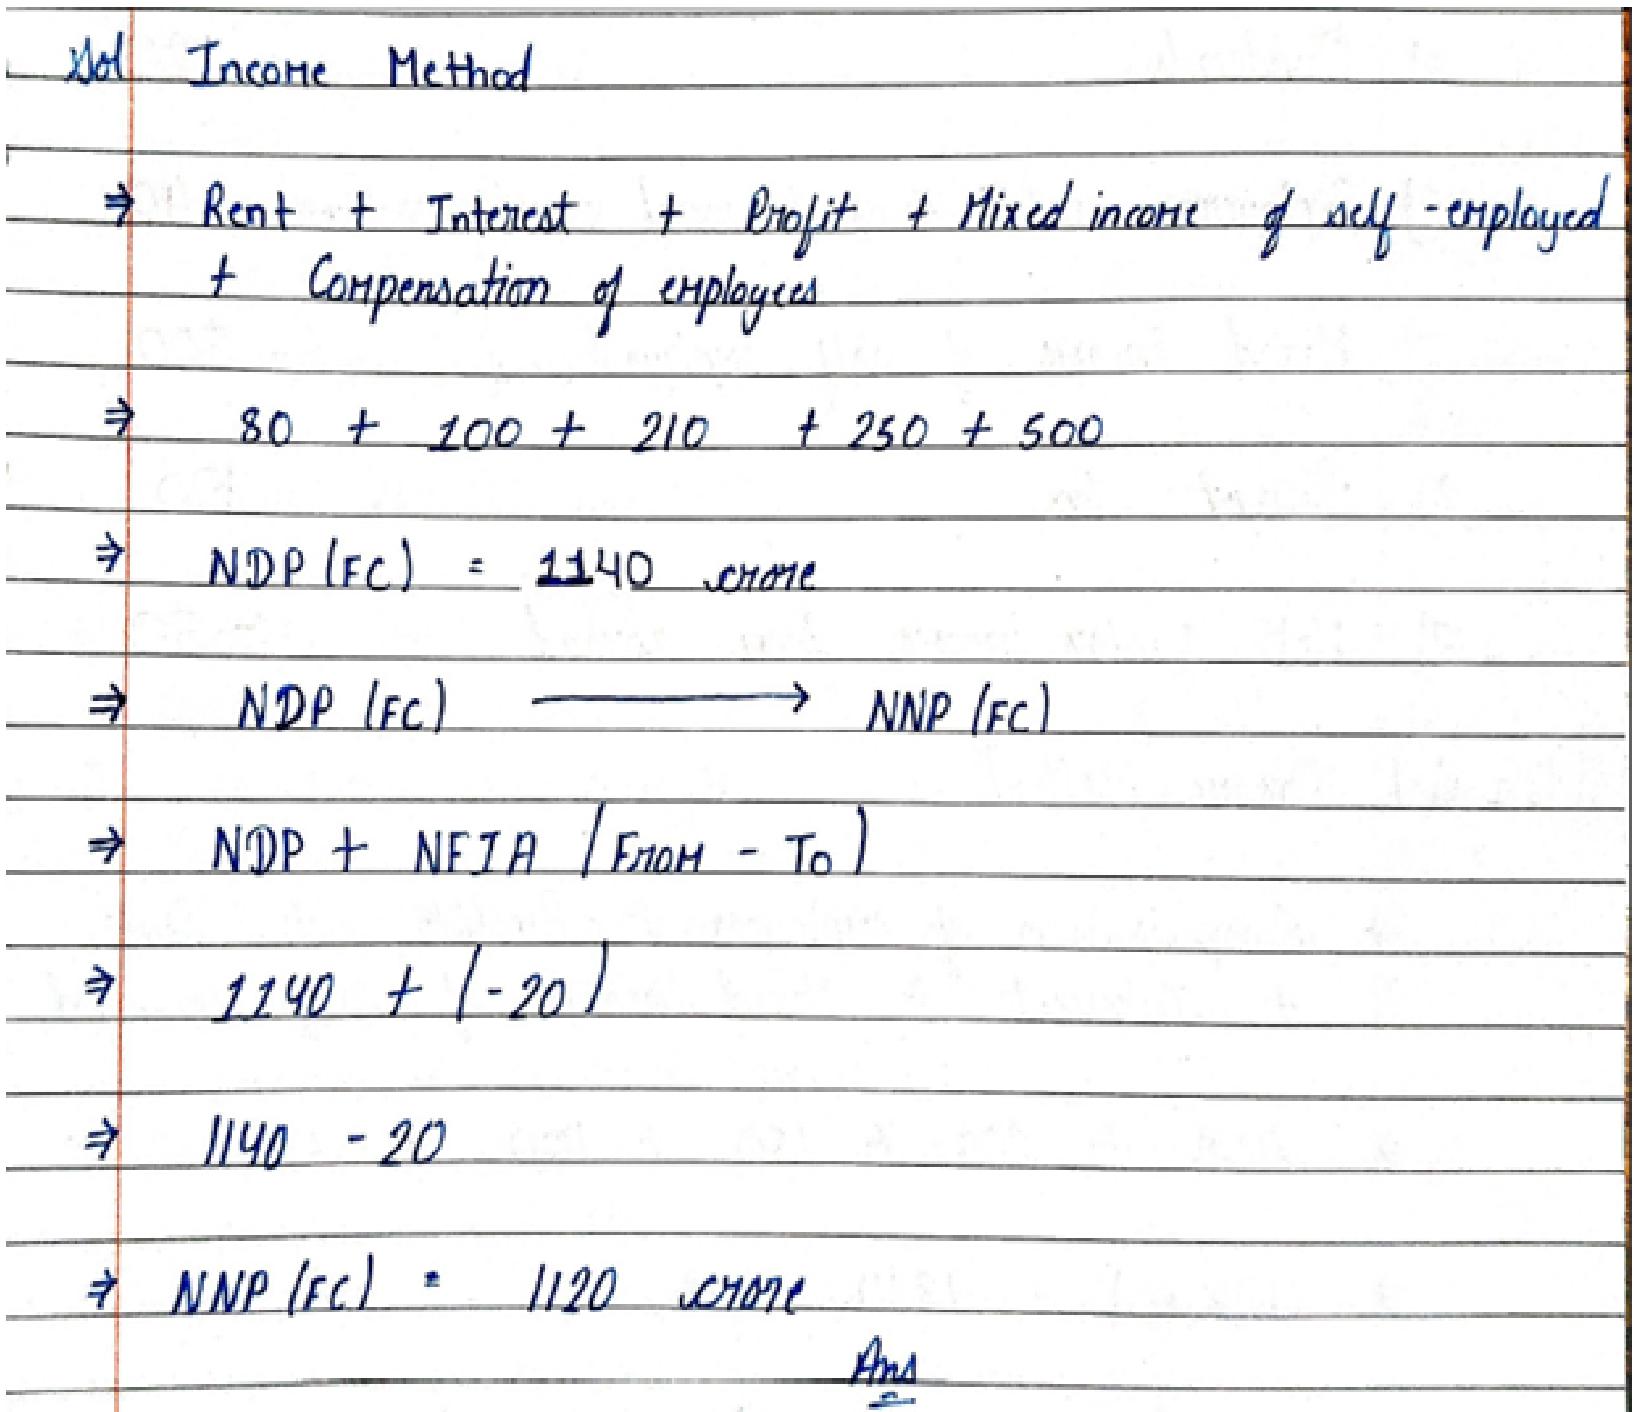 Sol Income Method
⇒ Rent + Interest + Profit + Mixed income of self-employed
+ Compensation of employees
⇒ 80 + 100 + 210 + 250 + 500
⇒ NDP (FC) = 1140 crore
⇒ NDP (FC) ⟶ NNP (FC)
⇒ NDP + NFIA (From - To)
⇒ 1140 + (-20)
⇒ 1140 - 20
⇒ NNP (FC) = 1120 crore
Ans